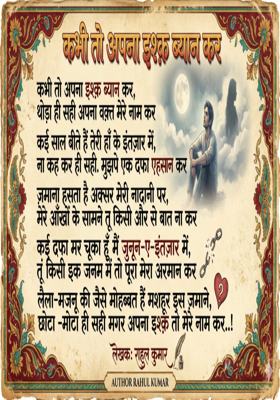 कभी तो अपना इश्क़ ब्यान कर
कभी तो अपना इश्क़ ब्यान कर,
थोड़ा ही सही अपना वक़्त मेरे नाम कर
कई साल बीते हैं तेरी हाँ के इंतज़ार में,
ना कह कर ही सही, मुझपे एक दफा एहसान कर
ज़माना हसता है अक्सर मेरी नादानी पर,
मेरे आँखों के सामने तू किसी और से बात ना कर
कई दफा मर चूका हूँ मैं जुनून-ए-इंतज़ार में,
तू किसी इक जनम में तो पूरा मेरा अरमान कर
लैला-मजनू की जैसे मोहब्बत हैं मशहूर इस ज़माने,
छोटा -मोटा ही सही मगर अपना इश्क़ तो मेरे नाम कर..!
लेखक: राहुल कुमार
AUTHOR RAHUL KUMAR